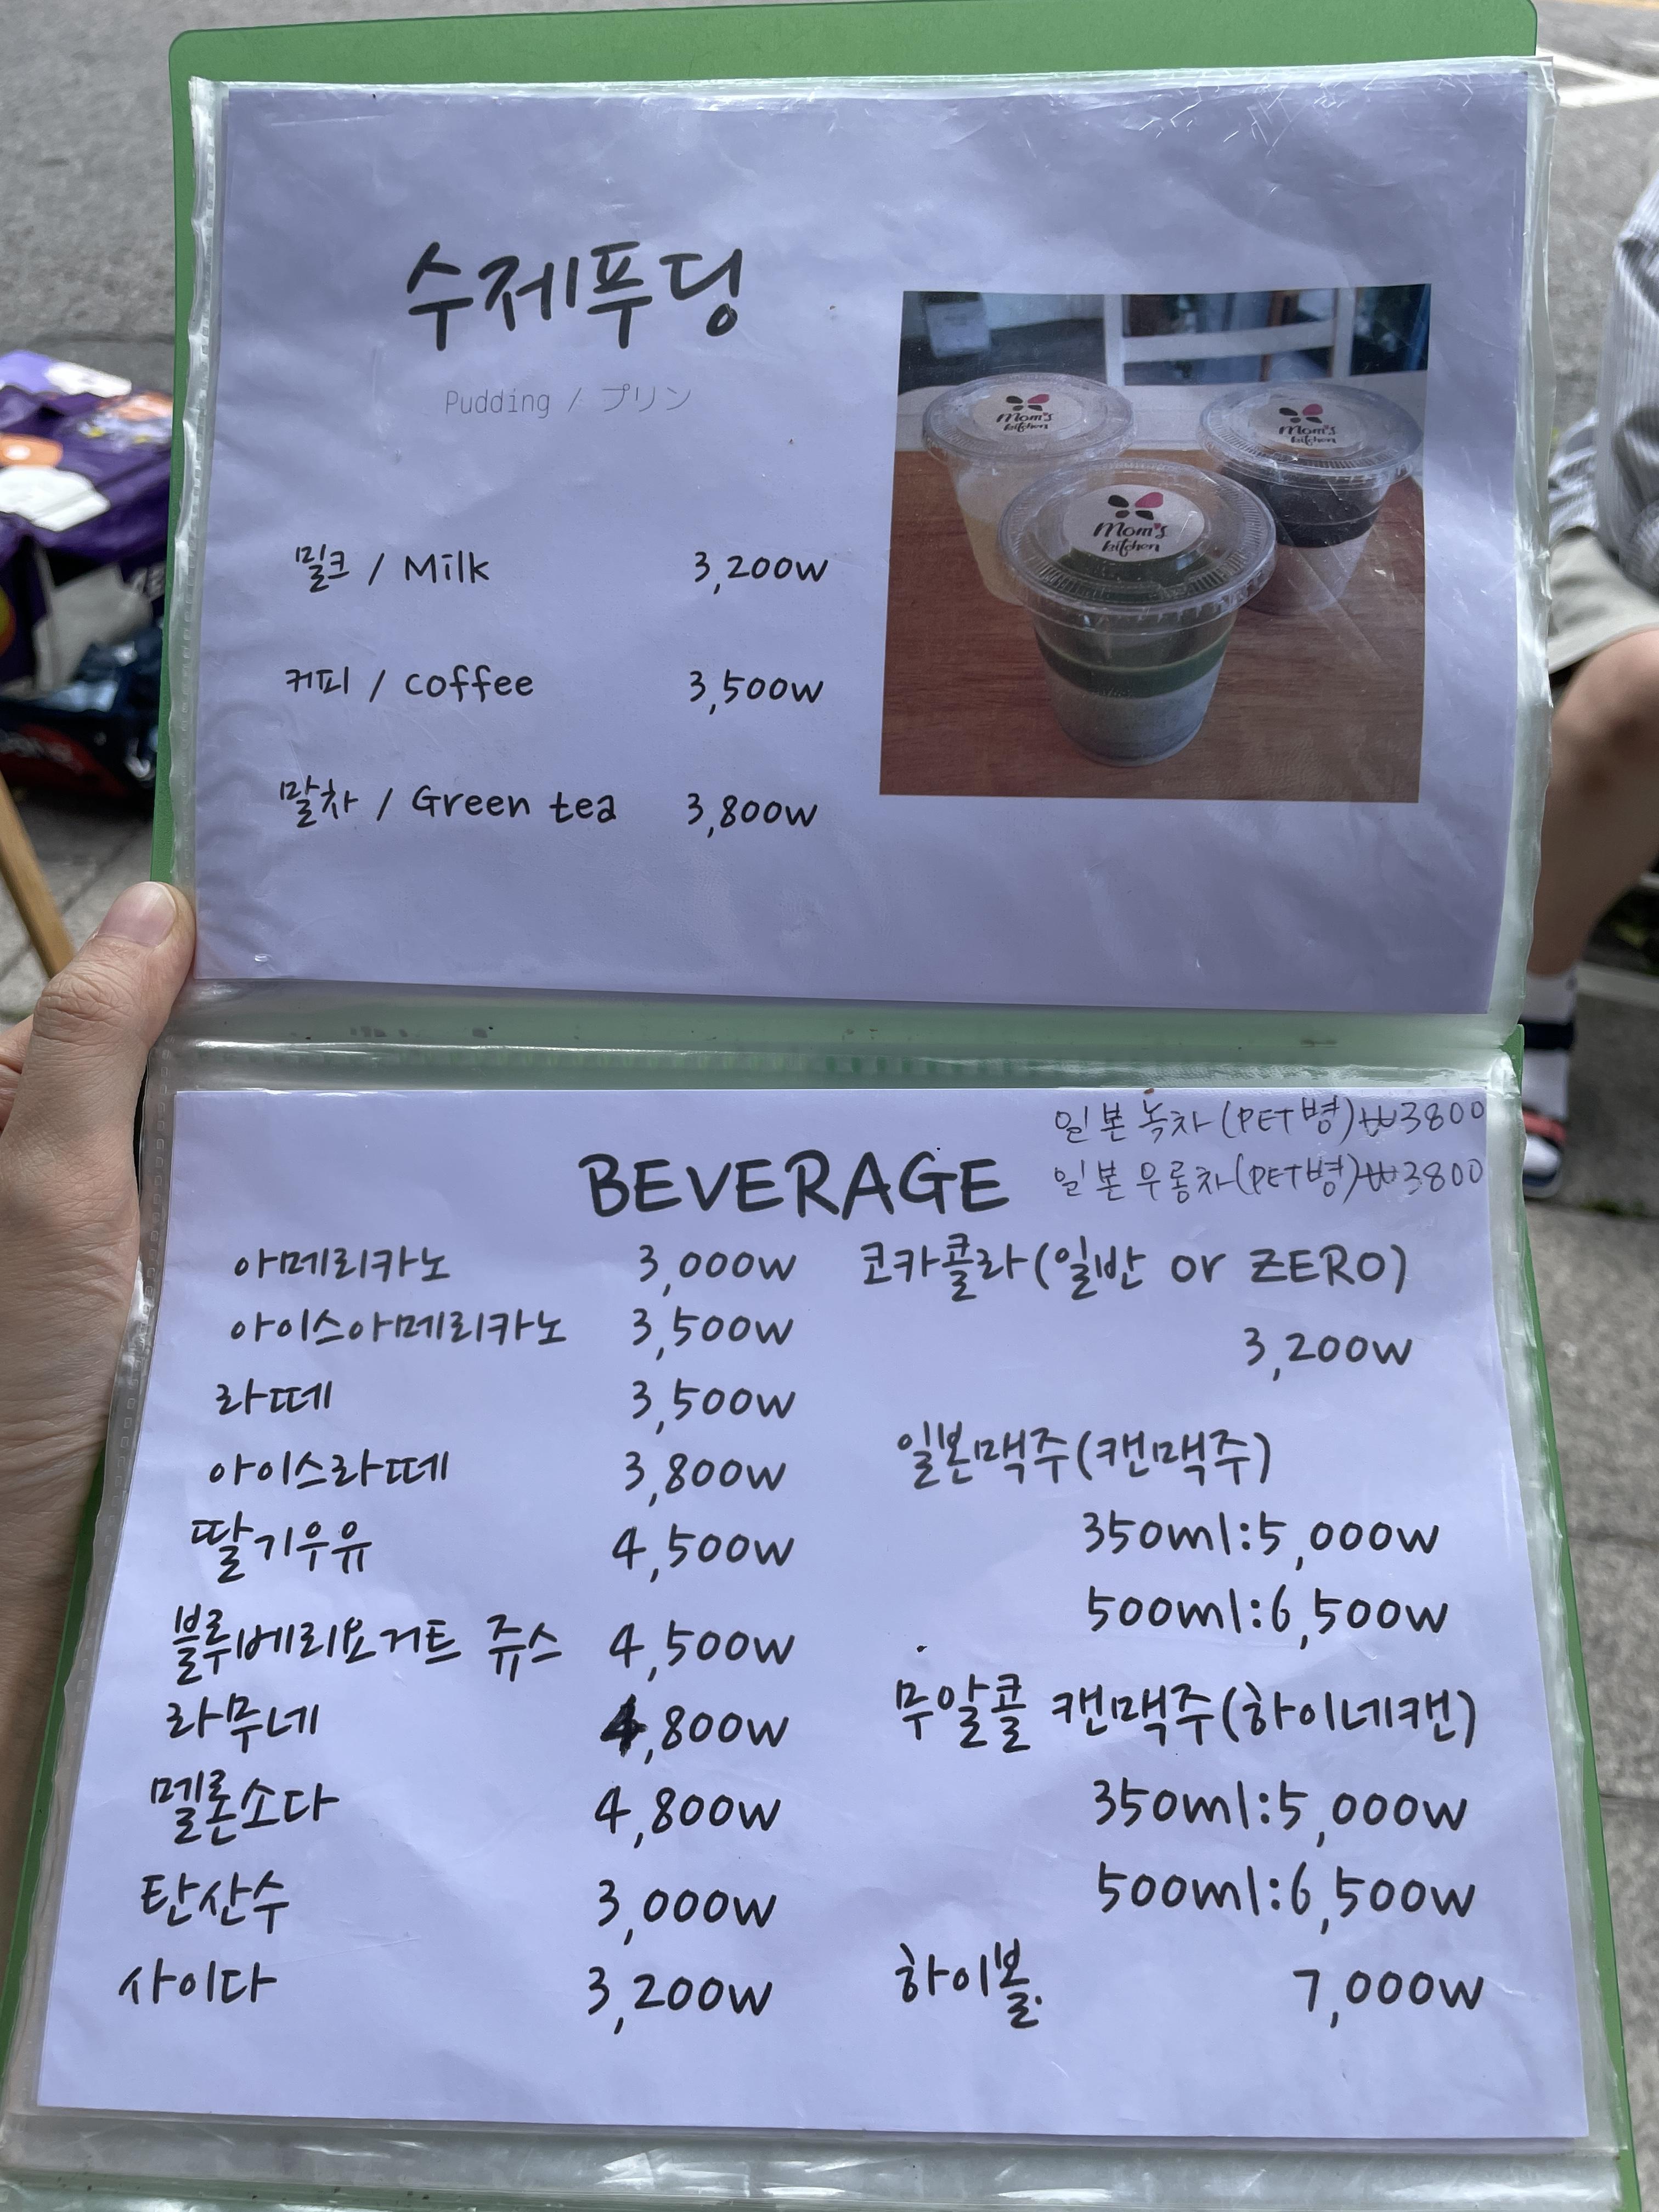 수제푸딩
Pudding / プリン
밀크 / Milk 3,200w
커피 / coffee 3,500w
말차 / Green tea 3,800w
Mom's
kitchen
Mom's
kitchen
Mom's
kitchen
일본 녹차(PET병)₩3800
일본 우롱차(PET병)₩3800
BEVERAGE
아메리카노 3,000w
아이스아메리카노 3,500w
라떼 3,500w
아이스라떼 3,800w
딸기우유 4,500w
블루베리요거트 쥬스 4,500w
라무네 4,800w
멜론소다 4,800w
탄산수 3,000w
사이다 3,200w
코카콜라(일반 or ZERO)
3,200w
일본맥주(캔맥주)
350ml:5,000w
500ml:6,500w
무알콜 캔맥주(하이네캔)
350ml:5,000w
500ml:6,500w
하이볼 7,000w